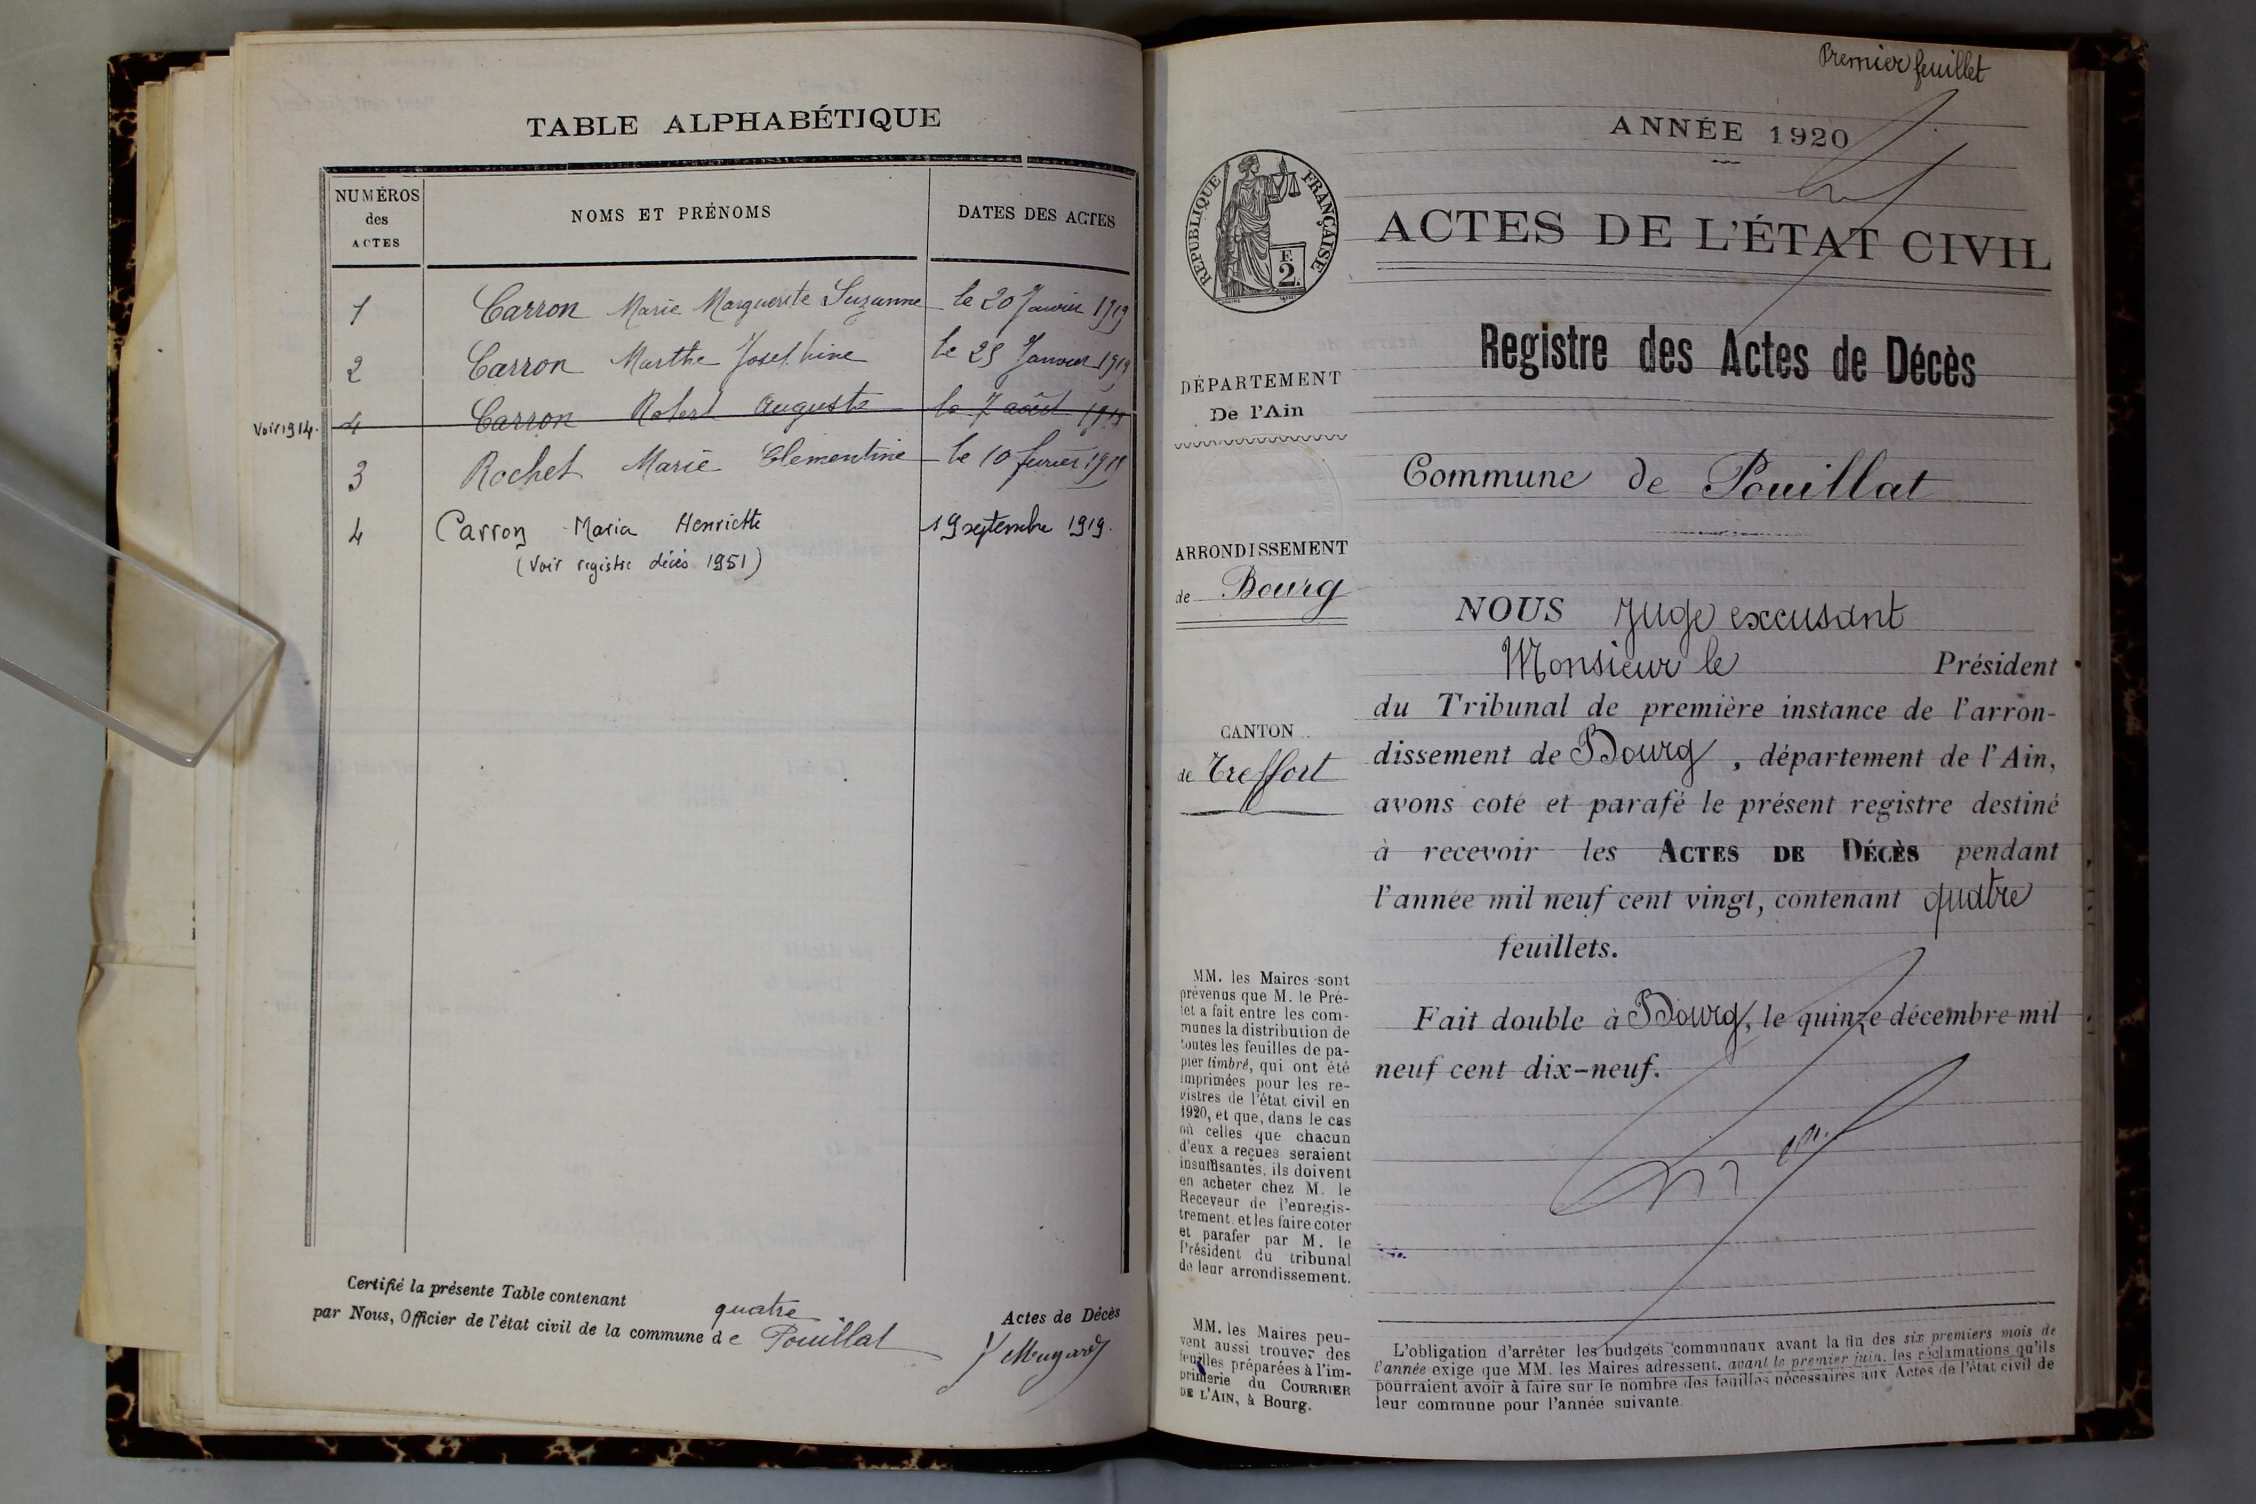 TABLE ALPHABÉTIQUE
NUMÉROS des ACTES
NOMS ET PRÉNOMS
DATES DES ACTES
1 Carron Marie Marguerite Suzanne le 20 Janvier 1919
2 Carron Marthe Josephine le 25 Janvier 1919
Voir 1914. 4 Carron Robert Auguste le 7 août 1919
3 Rochet Marie Clementine le 10 fevrier 1919
4 Carron Maria Henriette 19 septembre 1919.
(Voir registre décès 1951)
Certifié la présente Table contenant quatre Actes de Décès
par Nous, Officier de l'état civil de la commune de Pouillat
Premier feuillet
ANNÉE 1920
ACTES DE L'ÉTAT CIVIL
RÉPUBLIQUE FRANÇAISE
2 F.
Registre des Actes de Décès
DÉPARTEMENT
De l'Ain
Commune de Pouillat
ARRONDISSEMENT
de Bourg
CANTON
de Treffort
NOUS Juge excusant
Monsieur le Président
du Tribunal de première instance de l'arron-
dissement de Bourg, département de l'Ain,
avons coté et parafé le présent registre destiné
à recevoir les ACTES DE DÉCÈS pendant
l'année mil neuf cent vingt, contenant quatre
feuillets.
Fait double à Bourg, le quinze décembre mil
neuf cent dix-neuf.
MM. les Maires sont
prévenus que M. le Pré-
fet a fait entre les com-
munes la distribution de
toutes les feuilles de pa-
pier timbré, qui ont été
imprimées pour les re-
gistres de l'état civil en
1920, et que, dans le cas
où celles que chacun
d'eux a reçues seraient
insuffisantes, ils doivent
en acheter chez M. le
Receveur de l'enregis-
trement et les faire coter
et parafer par M. le
Président du tribunal
de leur arrondissement.
MM. les Maires peu-
vent aussi trouver des
feuilles préparées à l'im-
primerie du COURRIER
DE L'AIN, à Bourg.
L'obligation d'arrêter les budgets communaux avant la fin des six premiers mois de
l'année exige que MM. les Maires adressent, avant le premier juin, les réclamations qu'ils
pourraient avoir à faire sur le nombre des feuilles nécessaires aux Actes de l'état civil de
leur commune pour l'année suivante.